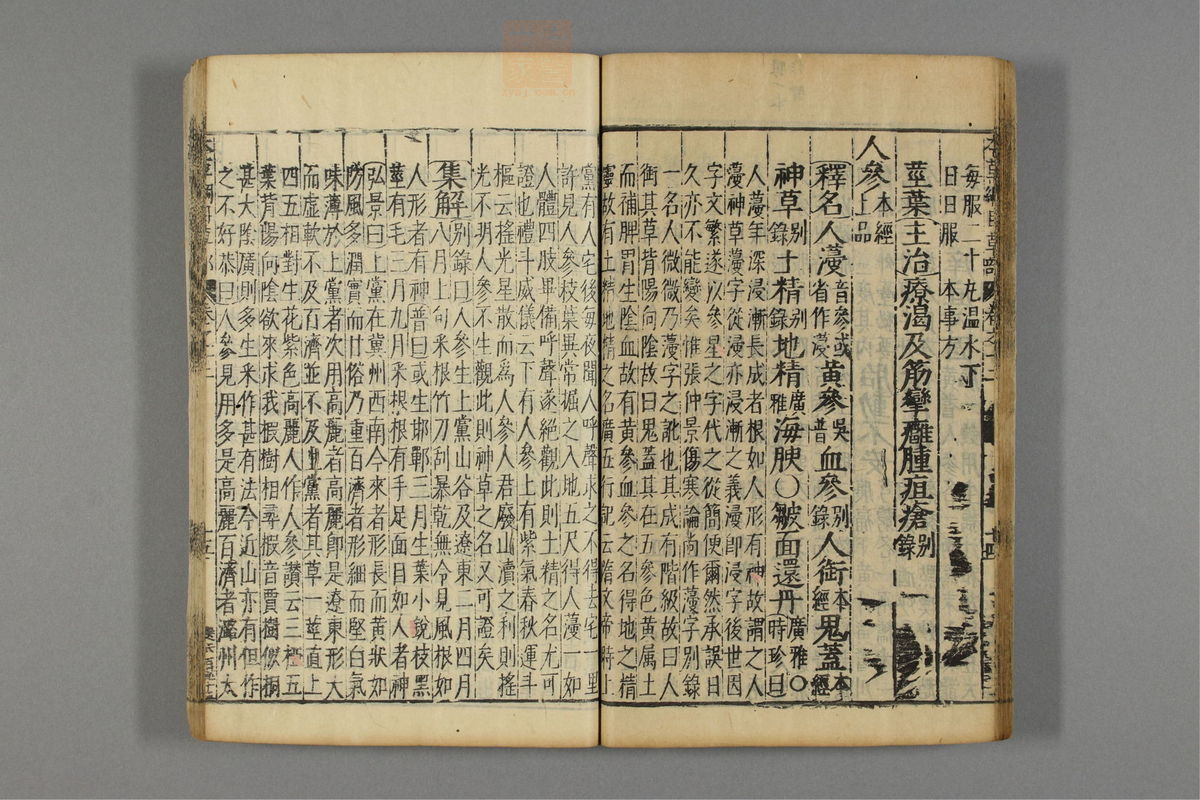 每服二十丸溫水下
日日服本事方
莖葉主治療渴及筋攣癰腫疽瘡別錄
人參本經上品
釋名人薓音參或省作蓡黃參吳普血參別錄人銜本經鬼蓋本經
神草別錄土精別錄地精廣雅海腴○皺面還丹廣雅○時珍曰
人薓年深浸漸長成者根如人形有神故謂之人
薓神草薓字從浸亦浸漸之義浸即浸字後世因
字文繁遂以參星之字代之從簡便爾然承誤日
久亦不能變矣惟張仲景傷寒論尚作薓字別錄
一名人微微乃薓字之訛也其成有階級故曰人
銜其草背陽向陰故曰鬼蓋其在五參色黃属土
而補脾胃生陰血故有黃參血參之名得地之精
靈故有土精地精之名廣五行記云隋文帝時上
黨有人宅後每夜聞人呼聲求之不得去宅一里
許見人參枝葉異常掘之入地五尺得人薓一如
人體四肢畢備呼聲遂絕觀此則土精之名尤可
證也禮斗威儀云下有人參上有紫氣春秋運斗
樞云搖光星散而為人參人君廢山瀆之利則搖
光不明人參不生觀此則神草之名又可證矣
集解別錄曰人參生上黨山谷及遼東二月四月
八月上旬采根竹刀刮暴乾無令見風根如
人形者有神普曰或生邯鄲三月生葉小銳枝黑
莖有毛三月九月采根根有手足面目如人者神
弘景曰上黨在冀州西南今來者形長而黃狀如
防風多潤實而甘俗乃重百濟者形細而堅白氣
味薄於上黨者次用高麗者高麗即是遼東形大
而虛軟不及百濟並不及上黨者其草一莖直上
四五相對生花紫色高麗人作人參讚云三椏五
葉背陽向陰欲來求我椵樹相尋椵音賈樹似桐
甚大陰廣則多生采作甚有法今近山亦有但作
之不好恭曰人參見用多是高麗百濟者潞州太